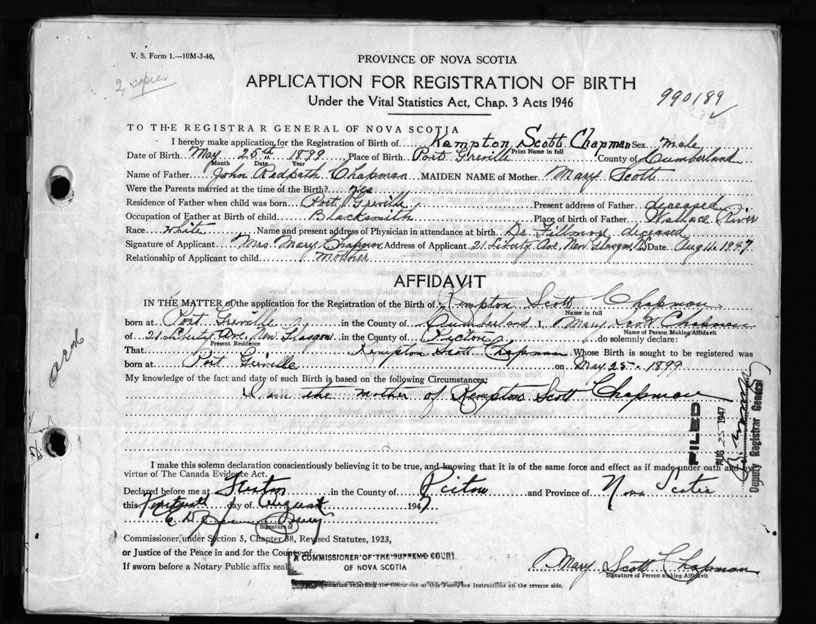 V. S. Form 1.—10M-3-46.
2 copies
PROVINCE OF NOVA SCOTIA
APPLICATION FOR REGISTRATION OF BIRTH
Under the Vital Statistics Act, Chap. 3 Acts 1946
990189
TO THE REGISTRAR GENERAL OF NOVA SCOTIA
I hereby make application for the Registration of Birth of Kempton Scott Chapman Sex male
Print Name in full
Date of Birth May 25th 1899 Place of Birth Port Greville County of Cumberland
Month Date Year
Name of Father John Redpath Chapman MAIDEN NAME of Mother Mary Scott
Were the Parents married at the time of the Birth? yes
Residence of Father when child was born Port Greville Present address of Father deceased
Occupation of Father at Birth of child Blacksmith Place of birth of Father Wallace River
Race White Name and present address of Physician in attendance at birth Dr. Fillmore, deceased
Signature of Applicant Mrs. Mary Chapman Address of Applicant 21 Liberty Ave, New Glasgow, NS Date Aug 11. 1947
Relationship of Applicant to child mother
AFFIDAVIT
IN THE MATTER of the application for the Registration of the Birth of Kempton Scott Chapman
Name in full
born at Port Greville in the County of Cumberland I, Mary Scott Chapman
Name of Person Making Affidavit
of 21 Liberty Ave. New Glasgow in the County of Pictou do solemnly declare:
Present Residence
That Kempton Scott Chapman Whose Birth is sought to be registered was
born at Port Greville on May 25. 1899
My knowledge of the fact and date of such Birth is based on the following Circumstances:
I am the mother of Kempton Scott Chapman
FILED
AUG 25 1947
Deputy Registrar General
I make this solemn declaration conscientiously believing it to be true, and knowing that it is of the same force and effect as if made under oath and by
virtue of The Canada Evidence Act.
Declared before me at in the County of Pictou and Province of Nova Scotia
this day of August 1947
Signature of
Commissioner under Section 5, Chapter 38, Revised Statutes, 1923,
or Justice of the Peace in and for the County of
A COMMISSIONER OF THE SUPREME COURT
OF NOVA SCOTIA
If sworn before a Notary Public affix seal
Mary Scott Chapman
Signature of Person making Affidavit
Instructions on the reverse side.